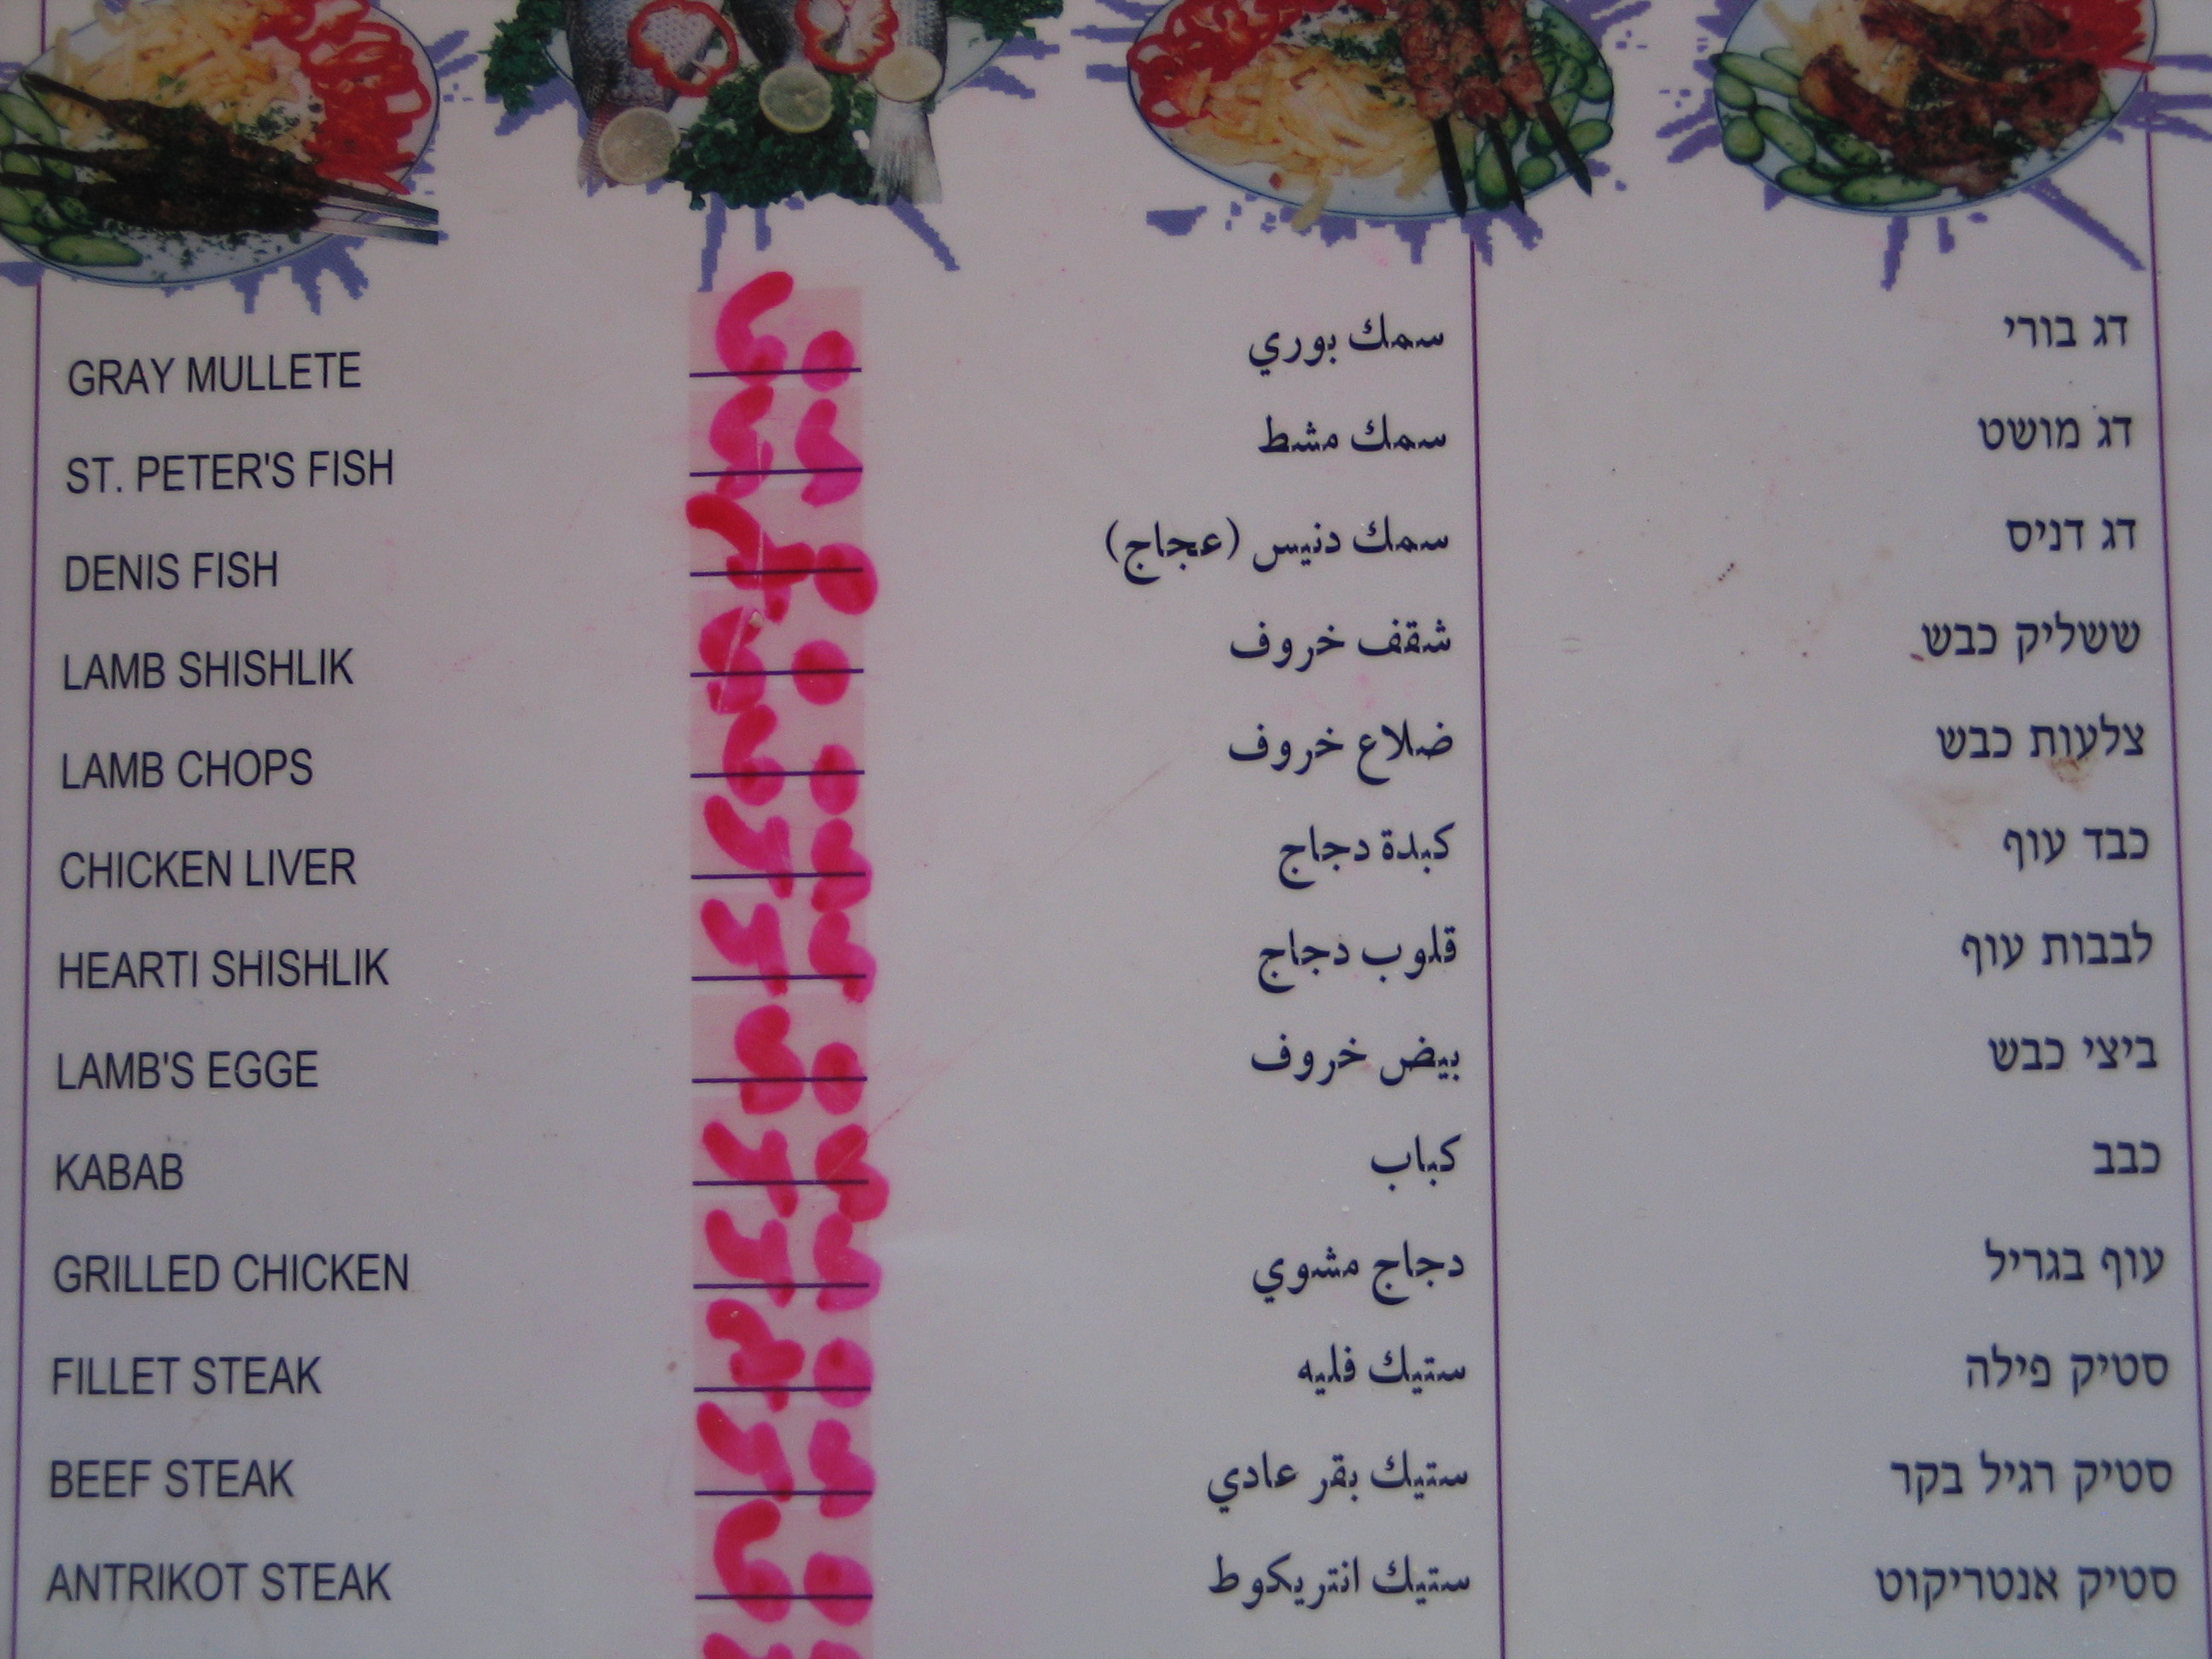 GRAY MULLETE سمك بوري דג בורי
ST. PETER'S FISH سمك مشط דג מושט
DENIS FISH سمك دنيس (عجاج) דג דניס
LAMB SHISHLIK شقف خروف ששליק כבש
LAMB CHOPS ضلاع خروف צלעות כבש
CHICKEN LIVER كبدة دجاج כבד עוף
HEARTI SHISHLIK قلوب دجاج לבבות עוף
LAMB'S EGGE بيض خروف ביצי כבש
KABAB كباب כבב
GRILLED CHICKEN دجاج مشوي עוף בגריל
FILLET STEAK ستيك فليه סטיק פילה
BEEF STEAK ستيك بقر عادي סטיק רגיל בקר
ANTRIKOT STEAK ستيك انتريكوط סטיק אנטריקוט